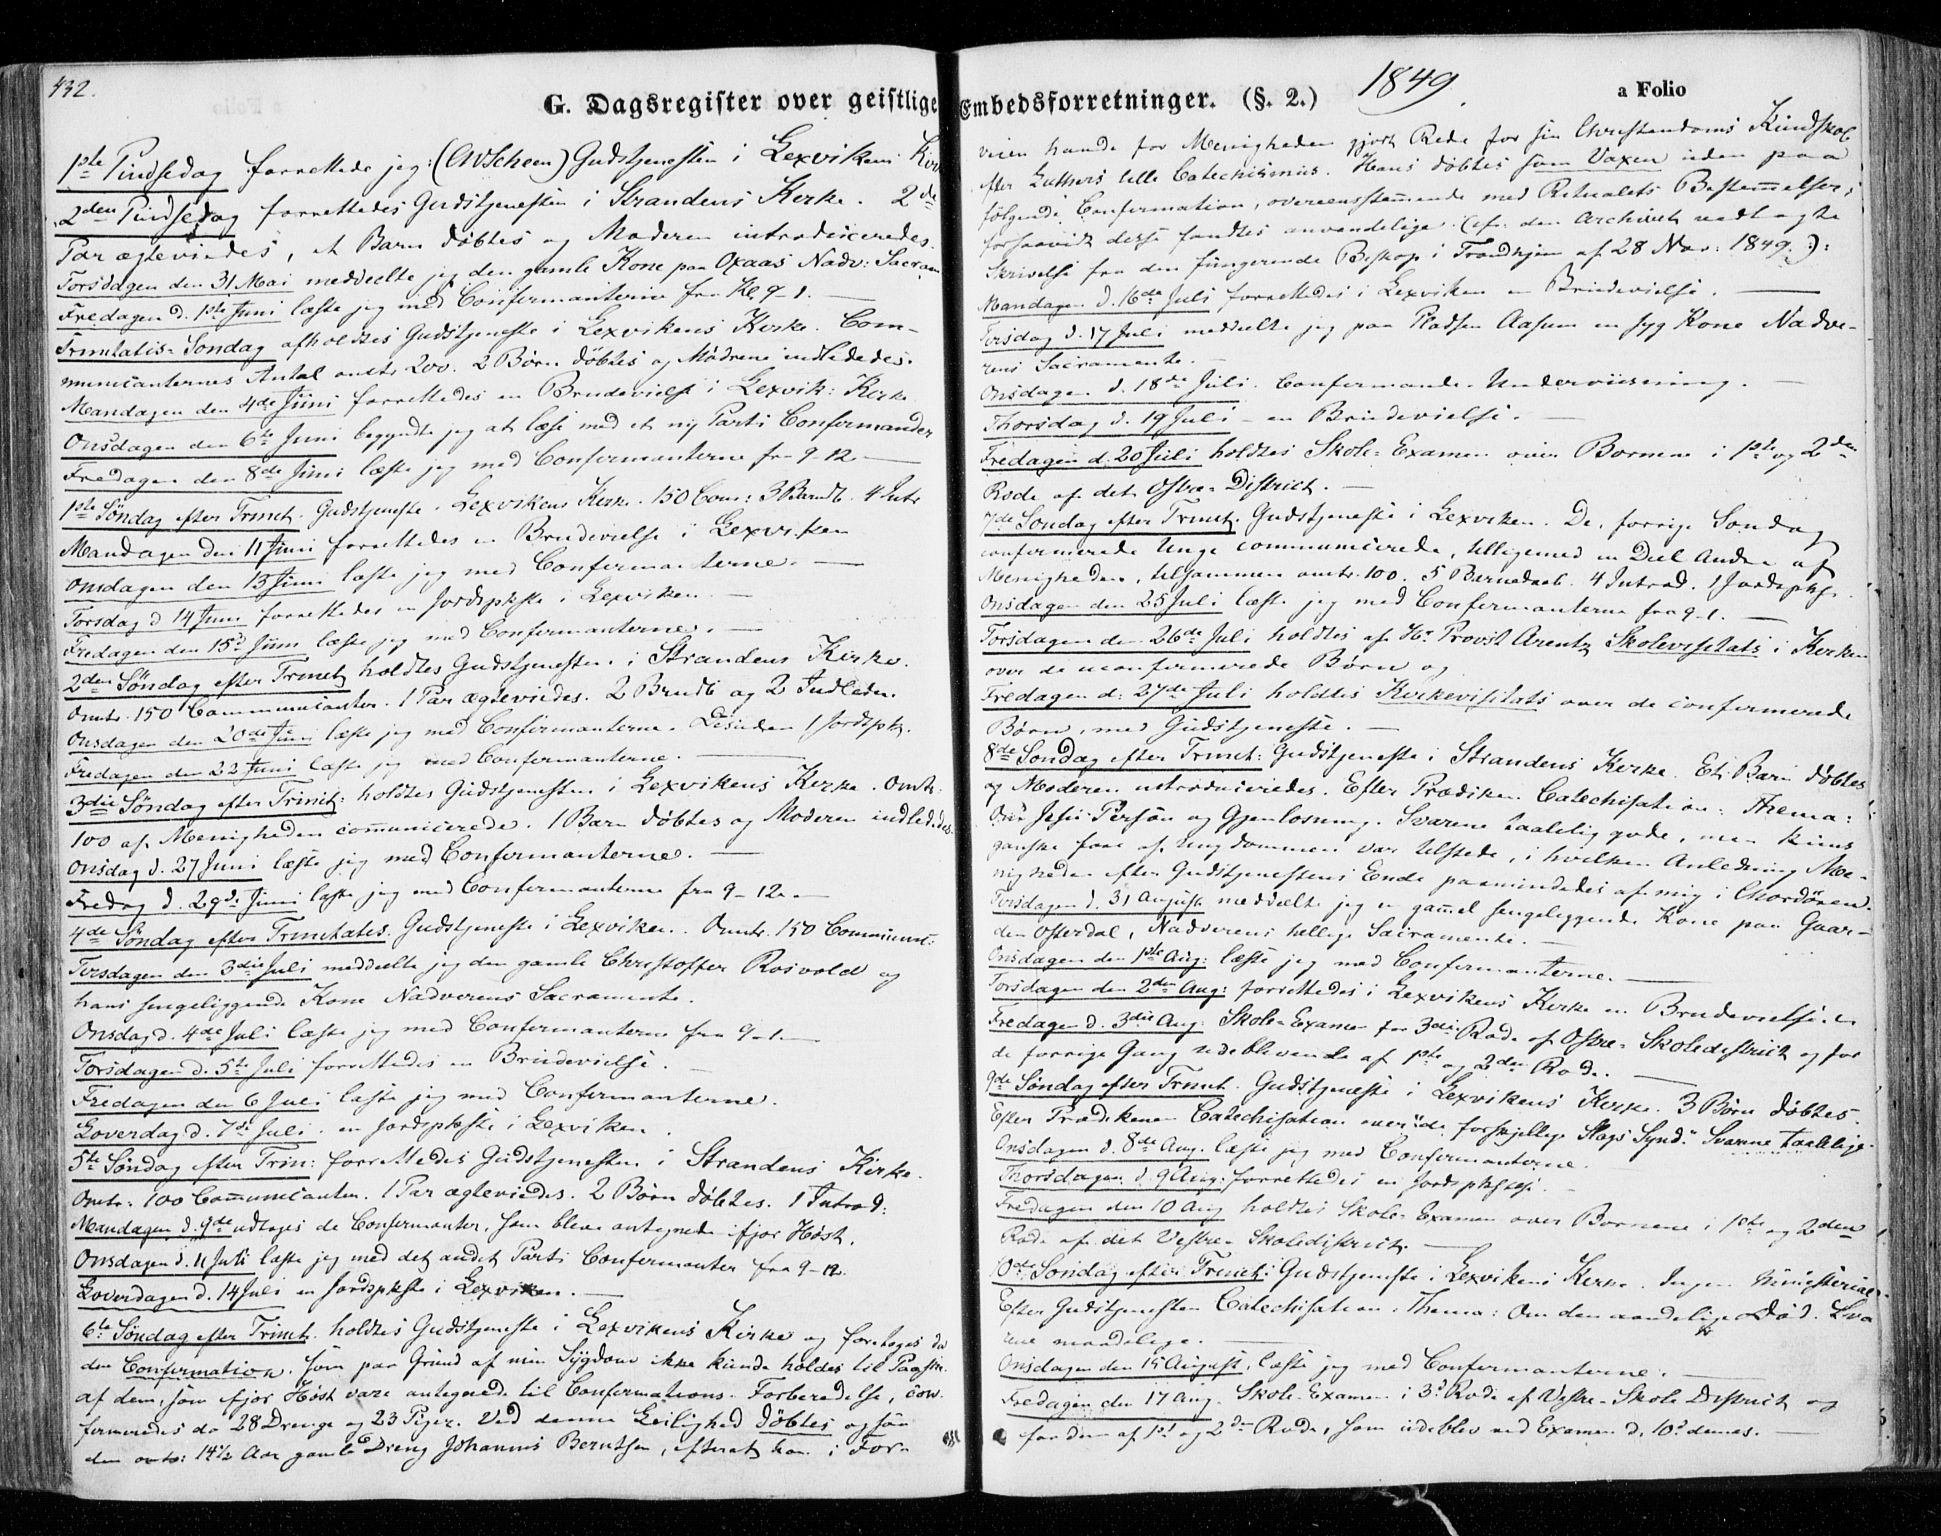 432.
G. Dagsregister over geistlige
1ste Pindsedag forrettede jeg (AvScheen) Gudstjenesten i Lexvikens Kirke
2den Pindsedag forrettedes Gudstjenesten i Strandens Kirke. 2de
Par ægteviedes, et Barn døbtes og Moderen introduceredes.
Torsdagen den 31 Mai meddeelte jeg den gamle Kone paa Oxaas Nadv: Sacram
Fredagen d. 1ste Juni læste jeg med Confirmanterne fra Kl. 9-1.
Trinitatis-Søndag afholdtes Gudstjeneste i Lexvikens Kirke. Com-
municanternes Antal omtr. 200. 2 Børn døbtes og Mødrene indlededes.
Mandagen den 4de Juni forrettedes en Brudevielse i Lexvik: Kirke
Onsdagen den 6te Juni begyndte jeg at læse med et ny Parti Confirmander
Fredagen den 8de Juni læste jeg med Confirmanterne fra 9-12
1ste Søndag efter Trinit: Gudstjeneste i Lexvikens Kirke. 150 Com: 3 Barnd. 4 Intr.
Mandagen den 11 Juni forrettedes en Brudevielse i Lexviken
Onsdagen den 13 Juni læste jeg med Confirmanterne.
Torsdag d 14 Juni forrettedes en Jordspkste i Lexviken.
Fredagen den 15d Juni læste jeg med Confirmanterne.
2den Søndag efter Trinit. holdtes Gudstjenesten i Strandens Kirke.
Omtr. 150 Communicanter. 1 Par ægteviedes. 2 Brndb og 2 Indleden.
Onsdagen den 20de Juni læste jeg med Confirmanterne. Desuden 1 Jordspk.
Fredagen den 22 Juni læste jeg med Confirmanterne.
3die Søndag efter Trinit: holdtes Gudstjenesten i Lexvikens Kirke. Omtr.
100 af Menigheden communicerede. 1 Barn døbtes og Moderen indlededes.
Onsdag d. 27 Juni læste jeg med Confirmanterne.
Fredag d. 29de Juni læste jeg med Confirmanterne fra 9-12
4de Søndag efter Trinitatis. Gudstjeneste i Lexviken. Omtr. 150 Communi:
Tirsdagen den 3die Juli meddeelte jeg den gamle Christoffer Rosvold og
hans sengeliggende Kone Nadverens Sacramente.
Onsdag d. 4de Juli læste jeg med Confirmanterne fra 9-1.
Torsdagen d. 5te Juli forrettedes en Brudevielse.
Fredagen den 6 Juli læste jeg med Confirmanterne.
Løverdag d. 7de Juli en Jordspkste i Lexviken.
5te Søndag efter Trin: forrettedes Gudstjenesten i Strandens Kirke.
Omtr. 100 Communicanter. 1 Par ægteviedes. 2 Børn døbtes. 1 Introd:
Mandagen d. 9de udtoges de Confirmanter, som bleve antegnede ifjor Høst.
Onsdagen d. 11 Juli læste jeg med det andet Parti Confirmanter fra 9-12.
Løverdagen d. 14 Juli en Jordspkste i Lexviken.
6te Søndag efter Trinit. holdtes Gudstjeneste i Lexvikens Kirke og foretoges da
den Confirmation, som paa Grund af min Sygdom ikke kunde holdes til Paaske.
af dem, som ifjor Høst vare antegnede til Confirmations-Forberedelse, con-
firmeredes da 28 Drenge og 23 Piger. Ved denne Leilighed døbtes ogsaa
den omtr: 14½ Aar gamle Dreng Johannes Berntsen, efterat han i For-
Embedsforretninger. (§. 2.) 1849. a Folio
veien havde for Menigheden gjort Rede for sin Christendoms Kundskab
efter Luthers lille Catechismus. Hans døbtes som Voxen uden paa
følgende Confirmation, overeensstemmende med Ritualets Bestemmelser,
forsaavidt disse fandtes anvendelige. (cfr. den Archivet vedlagte
Skrivelse fra den fungerende Biskop i Trondhjem af 28 Nov: 1849.):
Mandagen d. 16de Juli, forrettedes i Lexviken en Brudevielse.
Tirsdag d. 17 Juli meddeelte jeg paa Pladsen Aasum en syg Kone Nadve-
rens Sacramente.
Onsdagen d. 18de Juli. Confirmande-Underviisning.
Thorsdag d. 19 Juli - en Brudevielse.
Fredagen d. 20 Juli holdtes Skole-Examen over Børnene i 1ste og 2den
Rode af det Østre-District.
7de Søndag efter Trinit. Gudstjeneste i Lexviken. De, forrige Søndag
confirmerede Unge communicerede, tilligemed en Deel Andre af
Menigheden, tilsammen omtr. 100. 5 Barnedaab. 4 Introd. 1 Jordspkst.
Onsdagen den 25 Juli læste jeg med Confirmanterne fra 9-1.
Torsdagen den 26de Juli holdtes af Hr Provst Arentz Skolevisitats i Kirken
over de uconfirmerede Børn og
Fredagen d: 27de Juli holdtes Kirkevisitats over de confirmerede
Børn, med Gudstjeneste.
8de Søndag efter Trinit: Gudstjeneste i Strandens Kirke. Et Barn døbtes
og Moderen introduceredes. Efter Prædiken Catechisation. Thema:
Om Jesu Person og Gjenløsning. Svarene taalelig gode, men kuns
ganske faae af Ungdommen var tilstede, i hvilken Anledning Me-
nigheden efter Gudstjenestens Ende paamindedes af mig i Chordøren.
Tirsdagen d. 31 August meddeelte jeg en gammel sengeliggende Kone paa Gaar-
den Østerdal, Nadverens hellige Sacramente.
Onsdagen den 1ste Aug: læste jeg med Confirmanterne.
Torsdagen den 2den Aug: forrettedes i Lexvikens Kirke en Brudevielse.
Fredagen d. 3die Aug. Skole-Examen for 3die Rode af Østre-Skoledistrict og for
de forrige Gang udeblevende af 1ste og 2den Rode.
9de Søndag efter Trinit. Gudstjeneste i Lexvikens Kirke. 3 Børn døbtes.
Efter Prædikenen Catechisation over "de forskjellige Slags Synd." Svarene taalelige.
Onsdagen d. 8de Aug. læste jeg med Confirmanterne.
Thorsdagen d. 9 Aug: forrettedes en Jordspkstelse.
Fredagen den 10 Aug holdtes Skole-Examen over Børnene i 1ste og 2den
Rode af det Vestre-Skoledistrict.
10de Søndag efter Trinit: Gudstjeneste i Lexvikens Kirke. Ingen Ministerial.
Efter Gudstjenesten Catechisation. Thema: Om den aandelige Død. Sva
rene maadelige.
Onsdagen den 15 August, læste jeg med Confirmanterne.
Fredagen den 17 Aug. Skole-Examen i 3d Rode af Vestre-Skole District og
for dem af 1st og 2den Rode, som udeblev ved Examen d. 10d dennes.